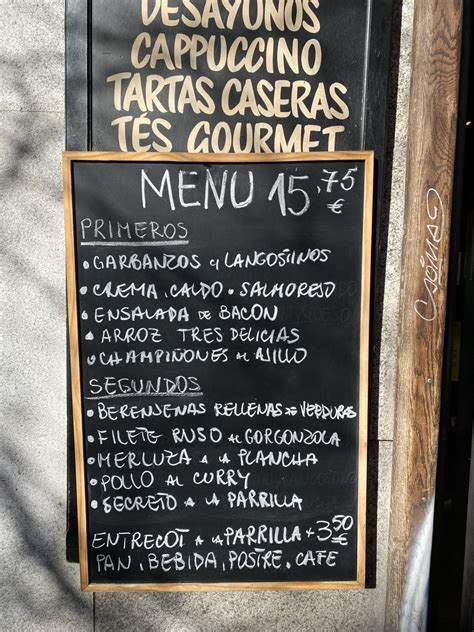 DESAYUNOS
CAPPUCCINO
TARTAS CASERAS
TÉS GOURMET
MENU 15,75 €
PRIMEROS
• GARBANZOS c/ LANGOSTINOS
• CREMA, CALDO o SALMOREJO
• ENSALADA DE BACON
• ARROZ TRES DELICIAS
• CHAMPIÑONES AL AJILLO
SEGUNDOS
• BERENJENAS RELLENAS DE VERDURAS
• FILETE RUSO AL GORGONZOLA
• MERLUZA A LA PLANCHA
• POLLO AL CURRY
• SECRETO A LA PARRILLA
ENTRECOT A LA PARRILLA + 3,50 €
PAN, BEBIDA, POSTRE, CAFE